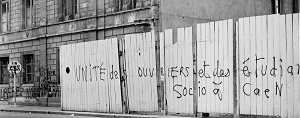 UNITÉ des OUVRIERS et des étudiants
Socio à CaeN